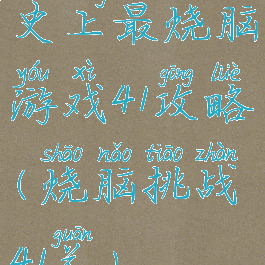 史上最烧脑
yóu xì gōng lüè
游戏41攻略
shāo nǎo tiāo zhàn
(烧脑挑战
guān
41关)